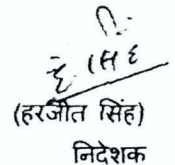 (हरजीत सिंह)
निदेशक